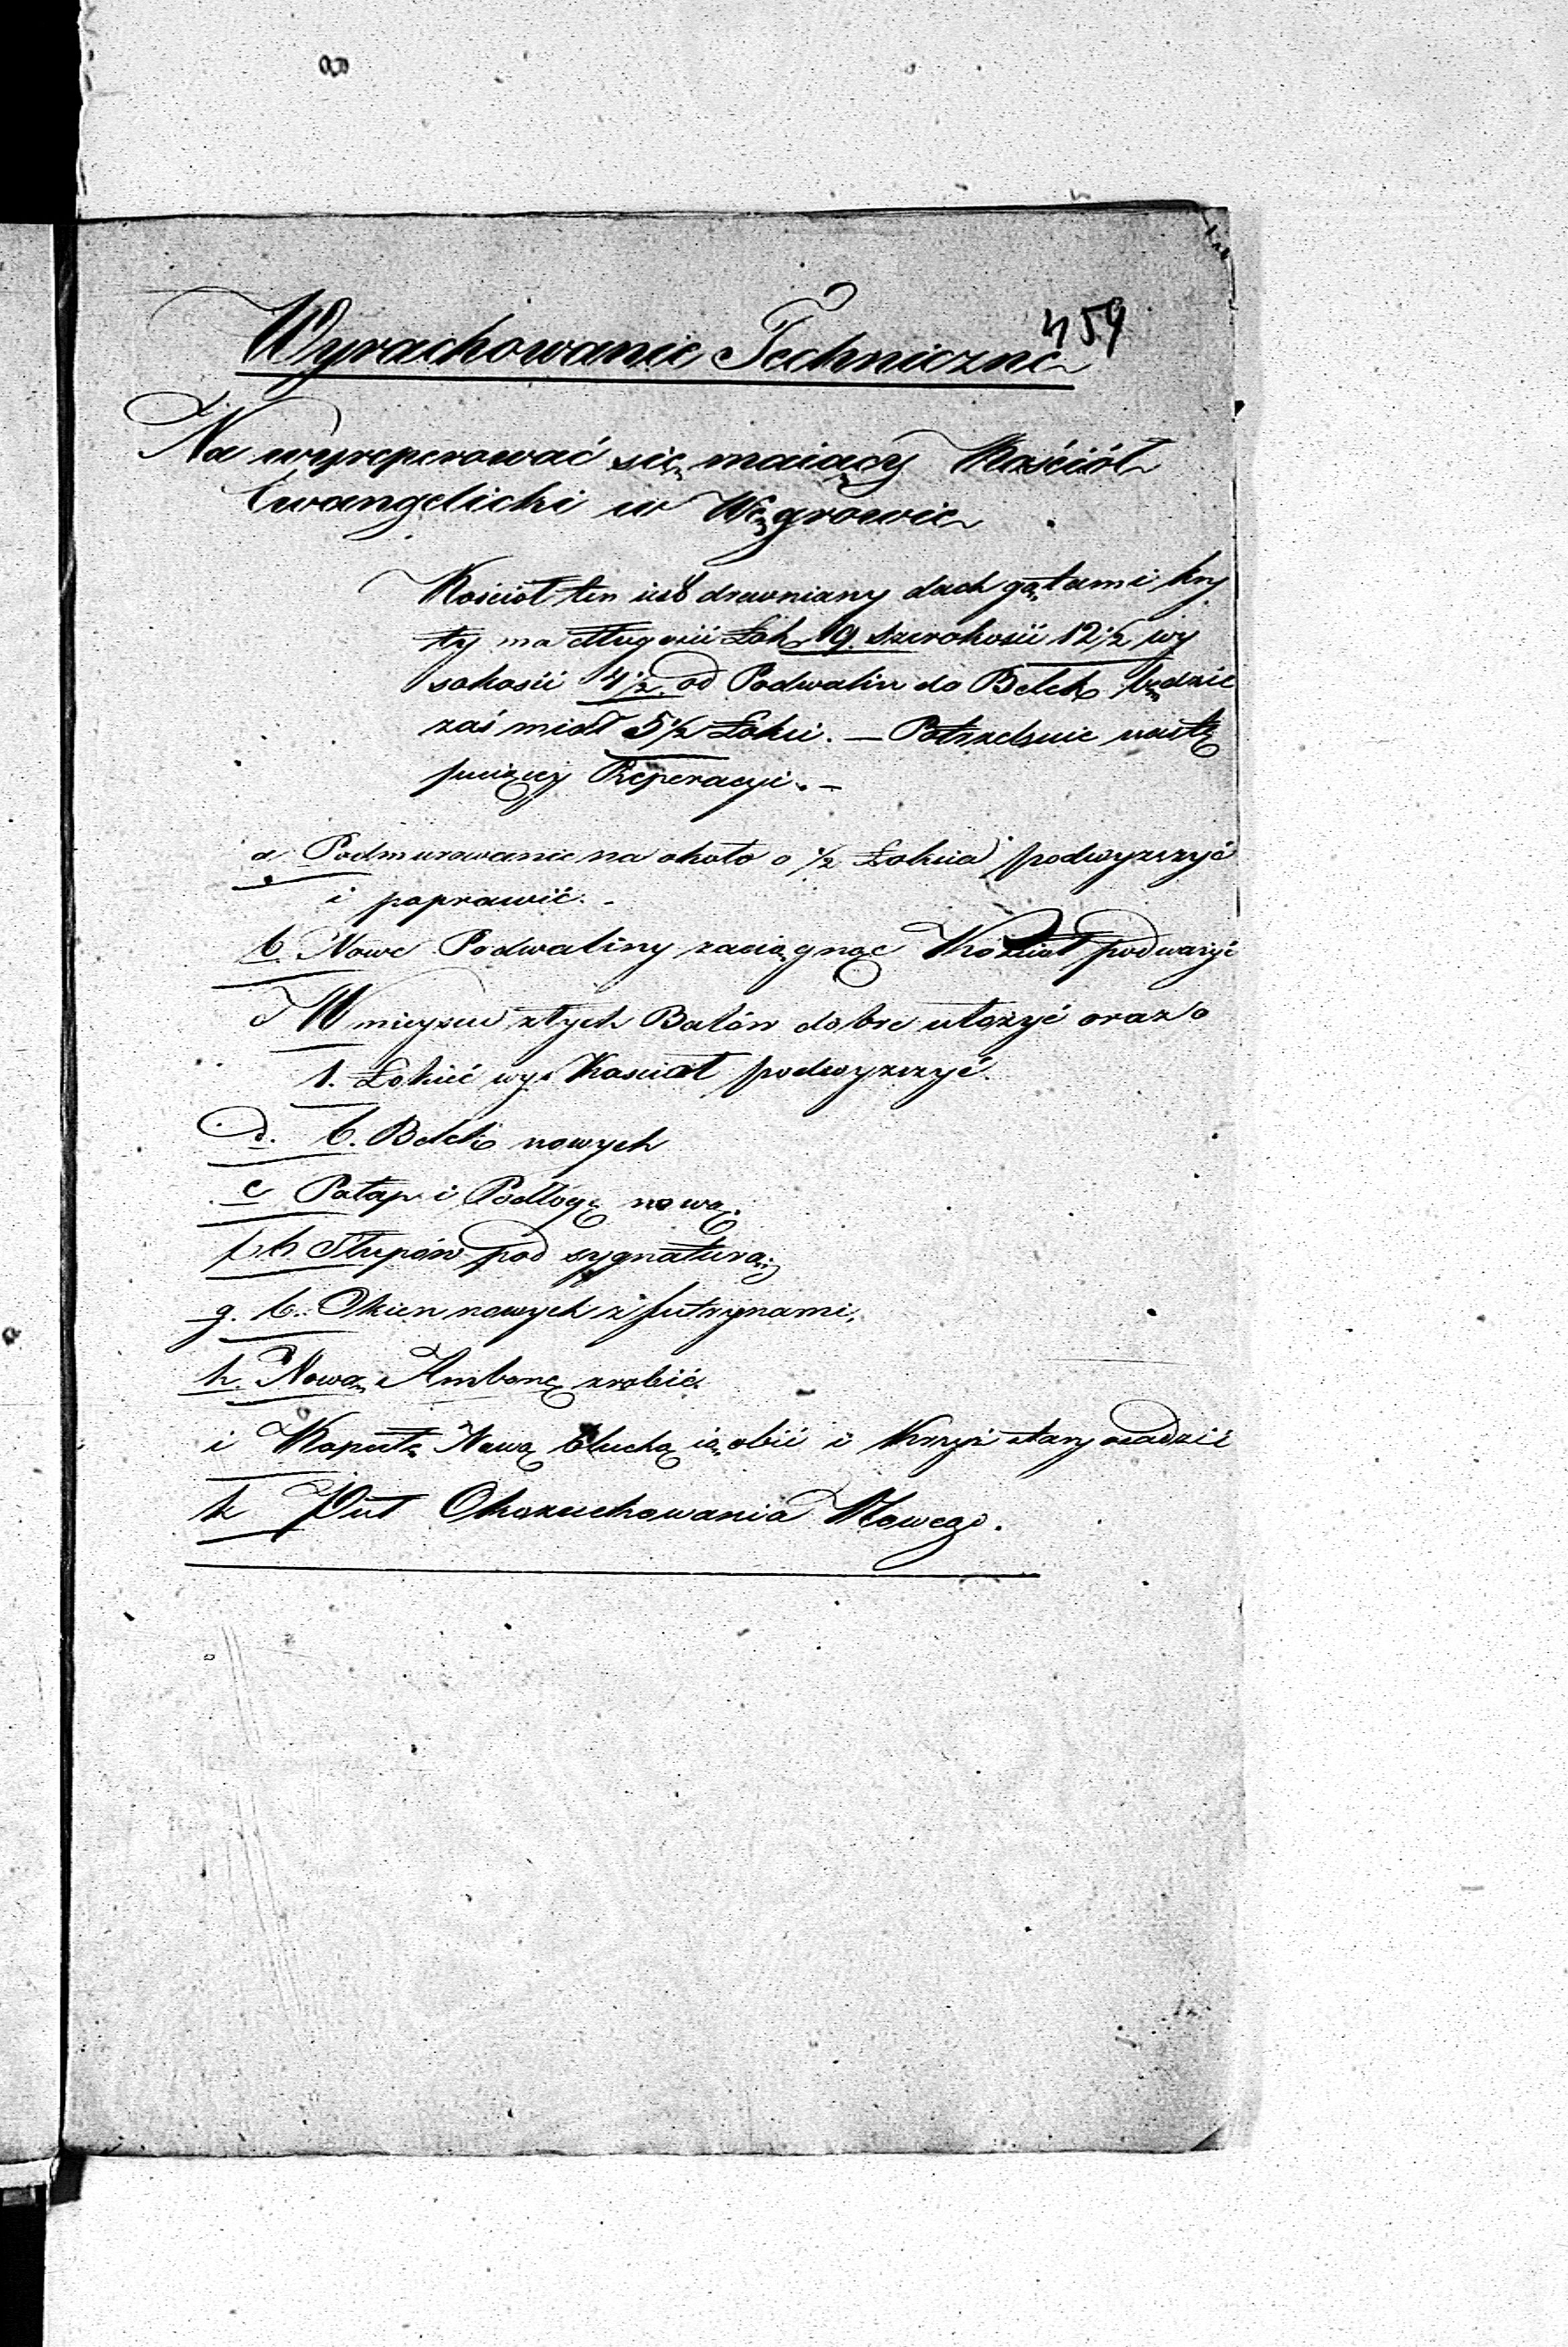 459
Wyrachowanie Techniczne
Na wyreperować się maiący Kościół
Ewangelicki w Węgrowie
Kościół ten iest drewniany dach gątami kry
ty ma długości Łok. 19. szerokości 12 1/2 wy
sokości 4 1/2. od Podwalin do Belek będzie
zaś miał 5 1/2 Łokci. — Potrzebuie nastę
puiącey Reperacyi. —
a Podmurowanie na około o 1/2 Łokcia podwyższyć
i poprawić. -
b. Nowe Podwaliny zaciągnąc Kościoł podważyć
c W mieyscu złych Balów dobre ułożyć oraz o
1. Łokieć wyż Kościoł podwyższyć.
d. 6. Belek nowych
e Pałap i Podłogę nową.
f. 6 Słupów pod sygnaturą
g. 6. Okien nowych z futrynami,
h. Nową Ambonę zrobić.
i Kopułę Nową blachą ią obić i Krzyż stary osadzić
k Put Nowego.